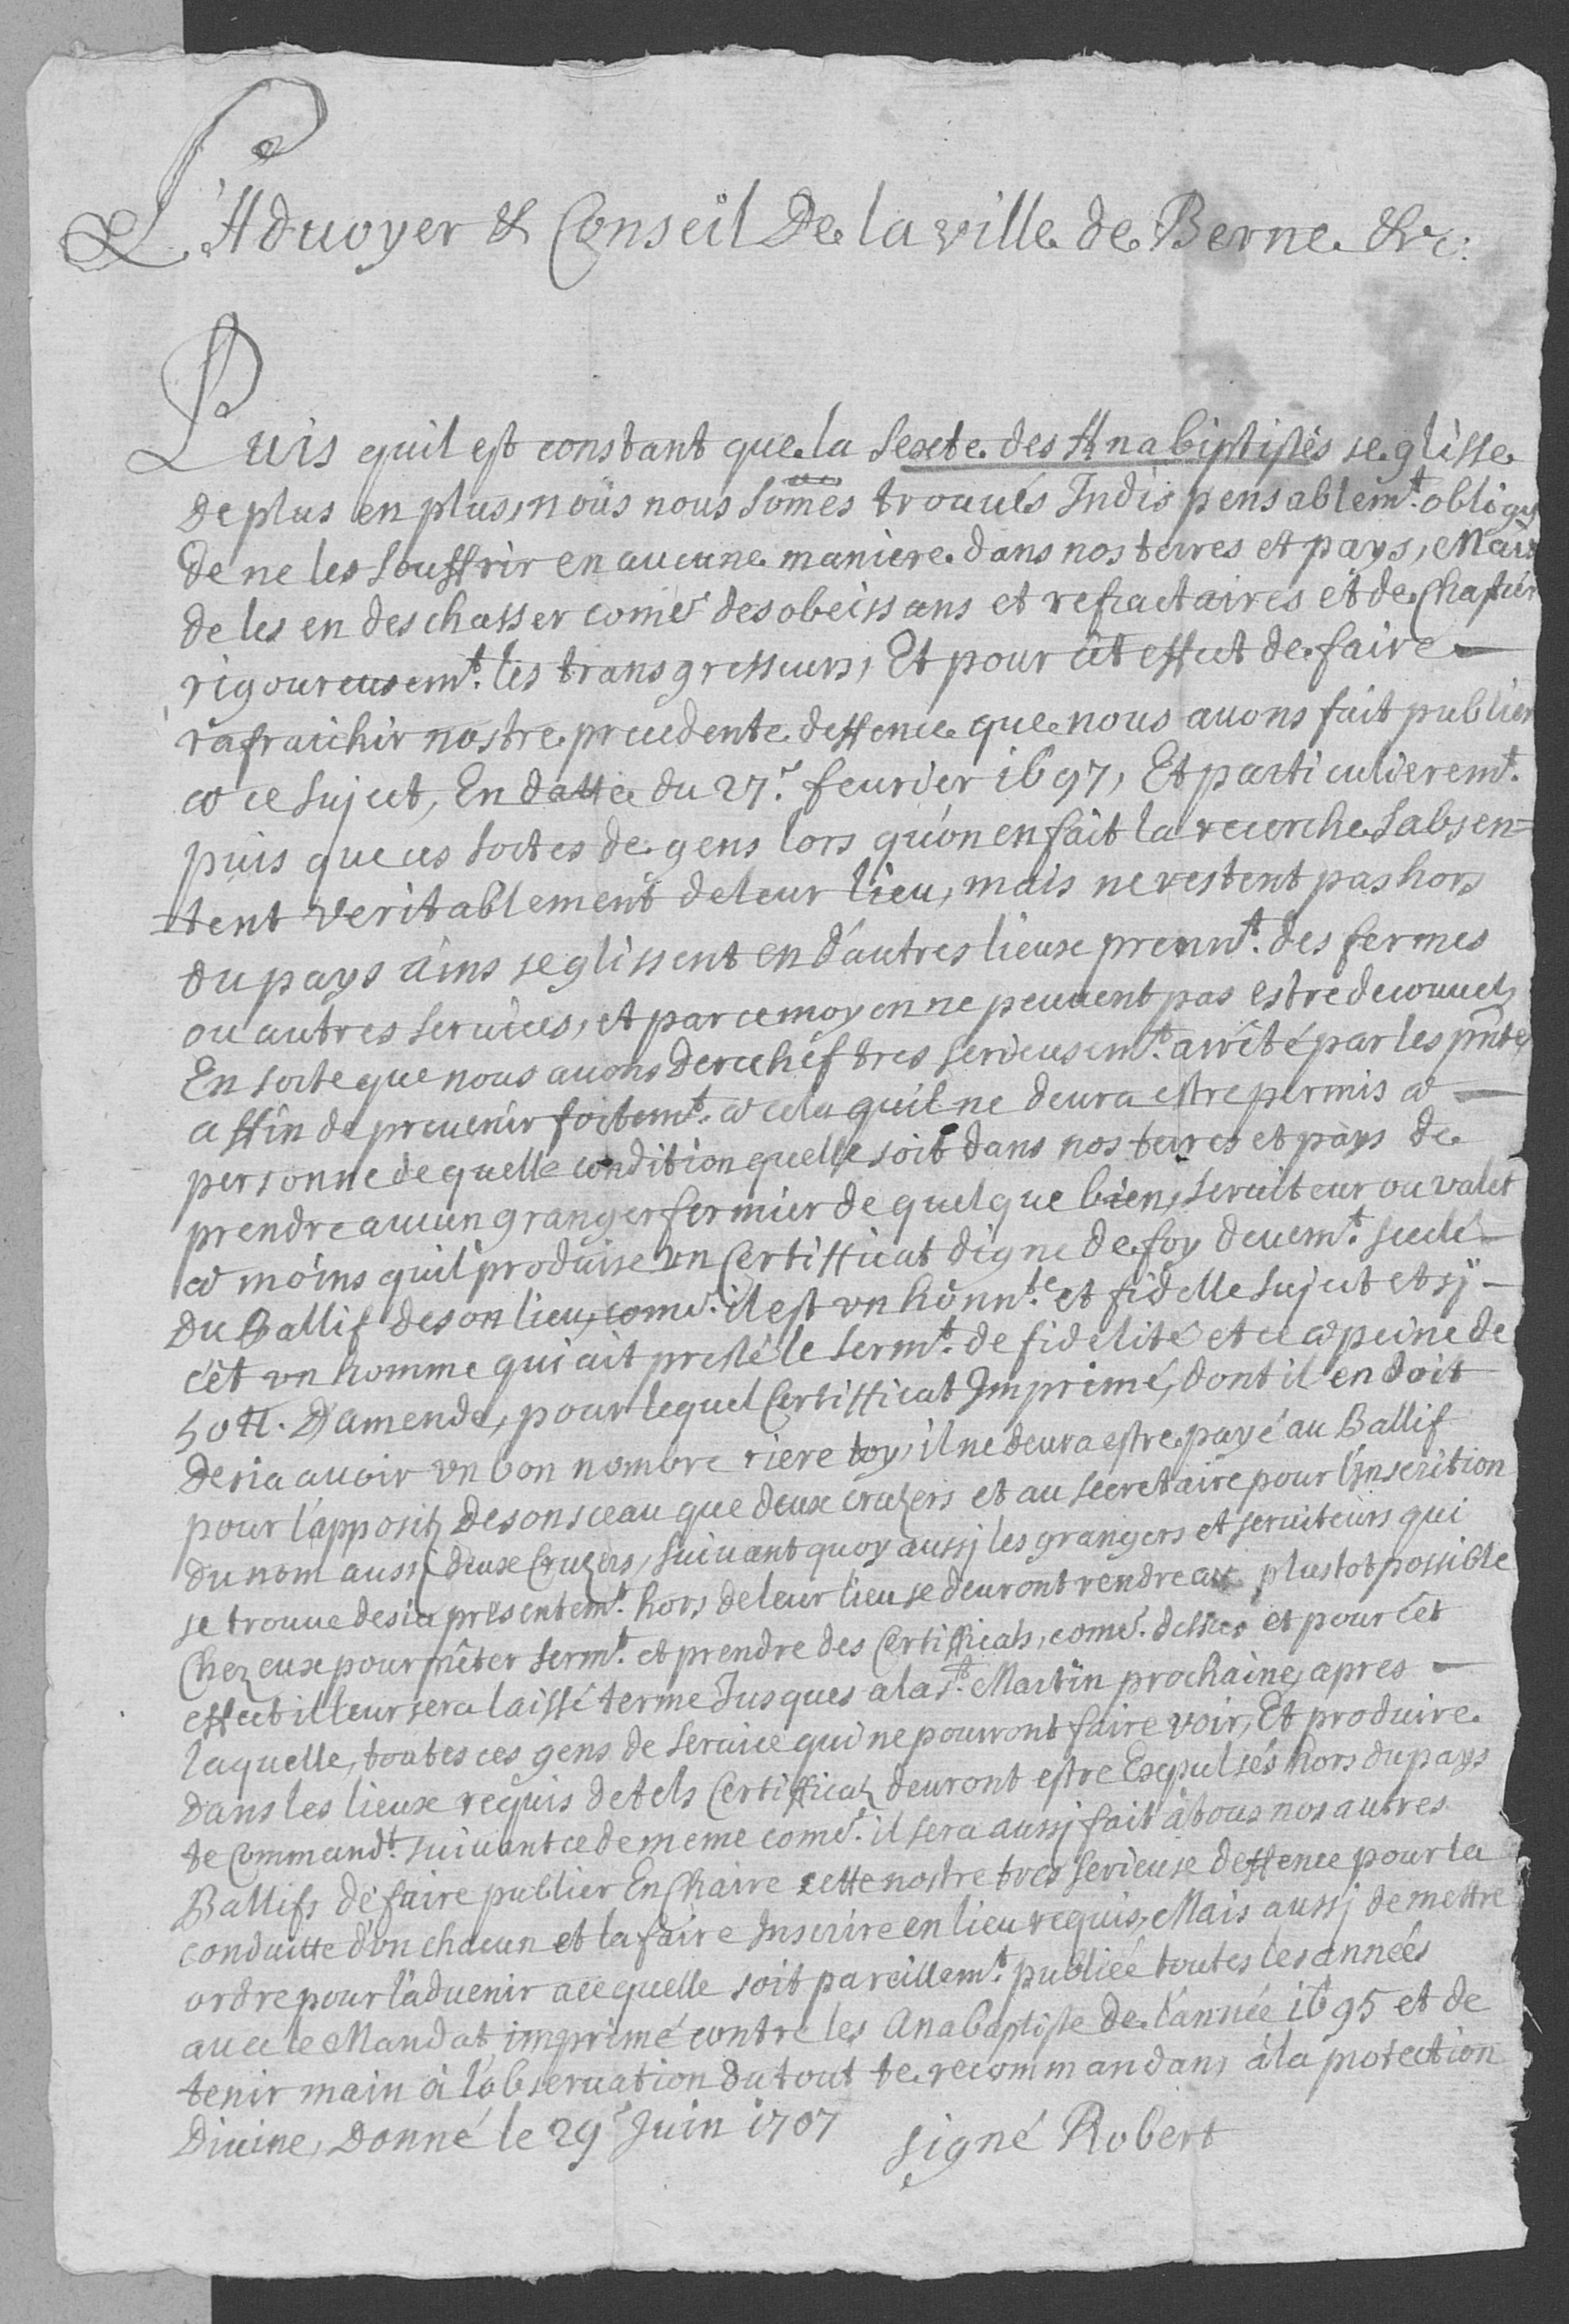 L'Aduoyer & Conseil De la ville de Berne &c:
Puis quil est constant que la Sexte des Anabiptistes se glisse
de plus en plus, nous nous somēs trouués Indispensablemt. obliges
De ne les Souffrir en aucune maniere dans nos terres et pays, Mais
de les en deschasser comē desobeissans et refractaires et de Chastier
rigoureusemt. les transgresseurs, Et pour cèt effect de faire
rafraichir nostre precedente deffence que nous auons fait publier
a ce Suject, En datte du 27e. feurier 1697, Et particulieremt.
puis que ces sortes de gens lors qu'on en fait la recerche S'absen=
tent veritablement de leur lieu, mais ne restent pas hors
du pays ains se glissent en d'autres lieux prennt. des fermes
ou autres seruices, et par ce moyen ne peuuent pas estre decouuets
En sorte que nous auons derechéf tres serieusemt. arrêté par les pntes
affin de preuenir fortemt. a cela quil ne deura estre permis a
personne de quelle condition quelle soit dans nos terres et pays de
prendre aucun granger fermier de quelque bien, seruiteur ou valet
a moins quil produise un Certifficat digne de foy deuemt. seelé
du Ballif de son lieu, comē. il est vn honnte. et fidelle Suject et sÿ
c'èt vn homme qui ait presté le sermt. de fidelité et ce a peine de
50 tt. D'amende, pour lequel Certifficat Imprimé, dont il en doit
desia auoir vn bon nombre riere toy, il ne deura estre payé au Ballif
pour l'appositz de son sceau que deux cruzers et au secretaire pour l'Inscrition
du nom aussi deux Cruzers, Suiuant quoy aussi les grangers et seruiteurs qui
se trouue desia presentemt. hors de leur lieu se deuront rendre au plustot possible
Chez eux pour prêter sermt. et prendre des Certifficats, comē. dessus et pour cèt
effect il leur sera laissé terme Jusques a la St. Martin prochaine, apres
laquelle, toutes ces gens de seruice qui ne pourront faire voir, Et produire
dans les lieux requis de tels Certifficaz deuront estre Expulsés hors du pays
te Commandt. suiuant ce de meme comē. il sera aussi fait à tous nos autres
Ballifs de faire publier En Chaire cette nostre tres serieuse deffence pour la
conduitte d'un chacun et la faire Inscrire en lieu requis, Mais aussi de mettre
ordre pour l'aduenir a ce quelle soit pareillemt. publiée toutes les années
auec le Mandat imprimé contre les Anabaptiste de l'année 1695 et de
tenir main à l'obseruation du tout te recommandans à la protection
Diuine, Donné le 29e Juin 1707 signé Robert